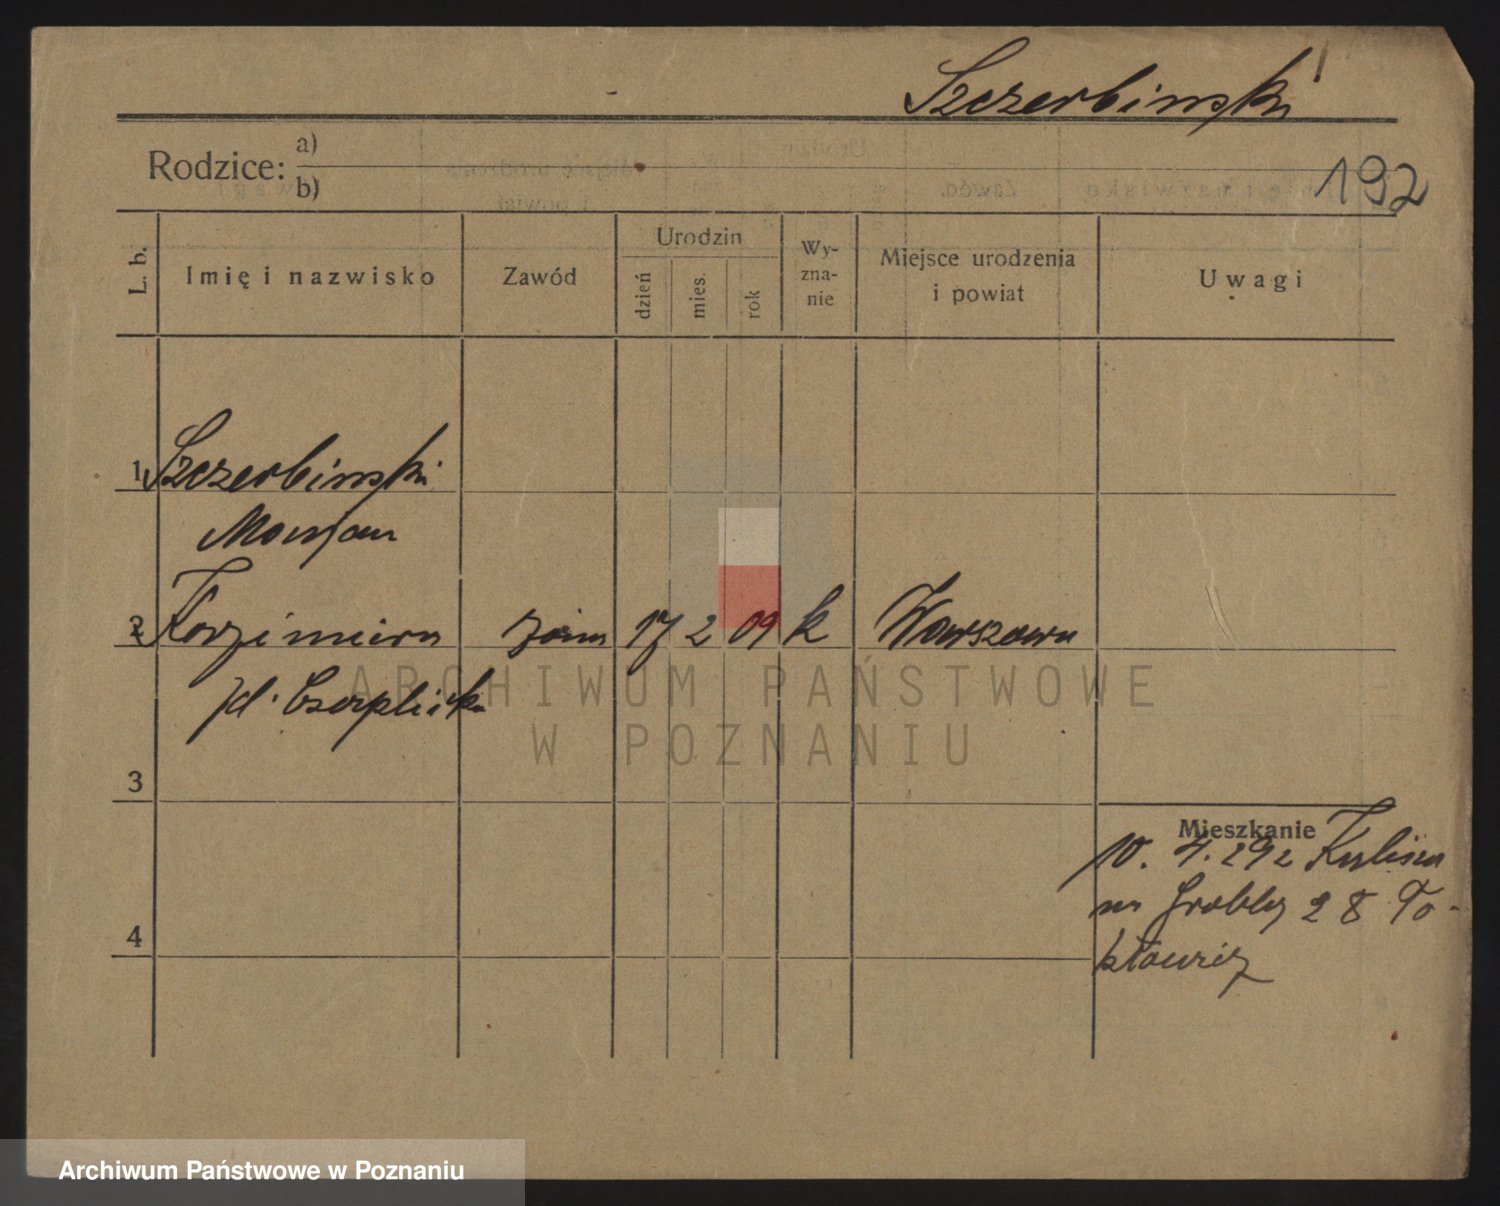 Szczerbinski
Rodzice: a)
b)
192
L. b.
Imię i nazwisko
Zawód
Urodzin
dzień
mies.
rok
Wy-
zna-
nie
Miejsce urodzenia
i powiat
Uwagi
1 Szczerbinski
Marjan
2 Kazimiera żona 17 2 09 k Warszawa
3
Mieszkanie
10. 4.
Grobla 28
4
ARCHIWUM PAŃSTWOWE
W POZNANIU
Archiwum Państwowe w Poznaniu